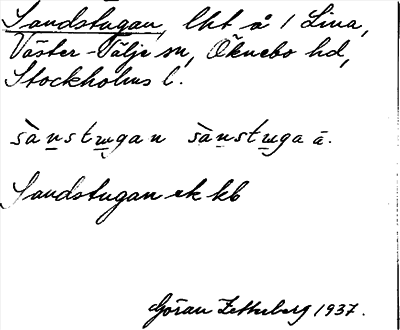 Sandstugan, lht å 1 Lina,
Väster-Tälje sn, Öknebo hd,
Stockholms l.
sànstugan sànstuga ā.
Sandstugan ek kb
Göran Zetterberg 1937.